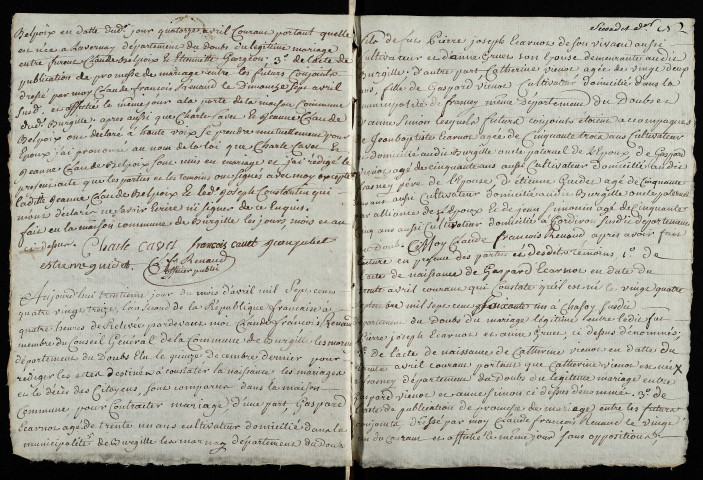 Belpoix en datte dud. jour quatorze avril Courant portant quelle
est née a Lavernay département du doubs du légitime mariage
entre furent Claude Belpoix et Pierrette Gargeon. 3° de lacte de
publication de promesse de mariage entre les futurs Conjoints
dressé par moy Claude françois Renaud le Dimanche Sept avril
Susd. et affichée le même jour a la porte de la maison Commune
dud. Burgille. après aussi que Charle Cavet et Jeanne Claude
Belpoix ont declaré a haute voix se prendre mutuellement pour
Epoux j'ai prononcé au nom de la loi que Charle Cavet et
Jeanne Claude Belpoix sont unis en mariage et j'ai rédigé le
présent acte que les parties et les temoins ont signés avec moy excepté
laditte Jeanne Claude Belpoix et led. Joseph Constantin qui
m'ont declaré ne savoir écrire ni signer de ce enquis.
fait en la maison commune de Burgille les jours, mois et an
ci dessus. Charle Cavet françois cavet
estienne guedot C f Renaud
officier public
Aujourd'hui trentieme jour du mois d'avril mil Sept cens
quatre vingt treize, l'an Second de la République francaise a
quatre heures de Relevée pardevant moi Claude françois Renaud
membre du Conseil Général de la Commune de Burgille les marnay
département du Doubs Elu le quinze decembre dernier pour
rédiger les actes destinés a constater la naissance les mariages
et le décès des Citoyens, sont comparus dans la maison
Commune pour Contracter mariage d'une part, Gaspard
Learnot agé de trente un ans cultivateur domicilié dans la
municipalité de Burgille les marnay département du doubs
Second
fils de fut Pierre joseph Learnot de son vivant aussi
cultivateur et d'anne Grux son Epouse demeurante audit
Burgille. D'autre part Catherine vienot agée de vingt deux
ans, fille de Gaspard Vienot Cultivateur domicilié dans la
municipalité de frasney même Departement du Doubs et
d'anne Simon lesquels futurs conjoints etoient accompagnés
de Jeanbaptiste Learnot agé de Cinquante trois ans Cultivateur
domicilié audit Burgille oncle paternel de l'Epoux, de Gaspard
vienot agé de cinquante ans aussi Cultivateur domicilié
frasney père de l'Epouse D'etienne Guedot agé de Cinquante
ans aussi Cultivateur domicilié audit Burgille oncle paternel
par alliance de l'Epoux et de jean simon agé de cinquante
cinq ans aussi cultivateur domicilié a Cordiron susdit departement
du doubs. Moy Claude françois Renaud après avoir fait
lecture en presence des parties et desdits temoins, 1° de
l'acte de naissance de Gaspard Learnot en date du
avril courant qui Constate qu'il est né le vingt quatre
mil sept cens soixante un a Chasoy susdit
département du Doubs du mariage légitime entre ledit fut
Pierre joseph Learnot et anne Grux, ci dessus denommés,
2° de lacte de naissance de Catherine vienot en datte du
avril courant portant que Catherine vienot est née
frasney département du Doubs du légitime mariage entre
Gaspard vienot et anne simon ci dessus denommé, 3° de
l'acte de publication de promesse de mariage entre les futurs
conjoints dressé par moy Claude françois Renaud le vingt
un du courant et affiché le même jour sans opposition.